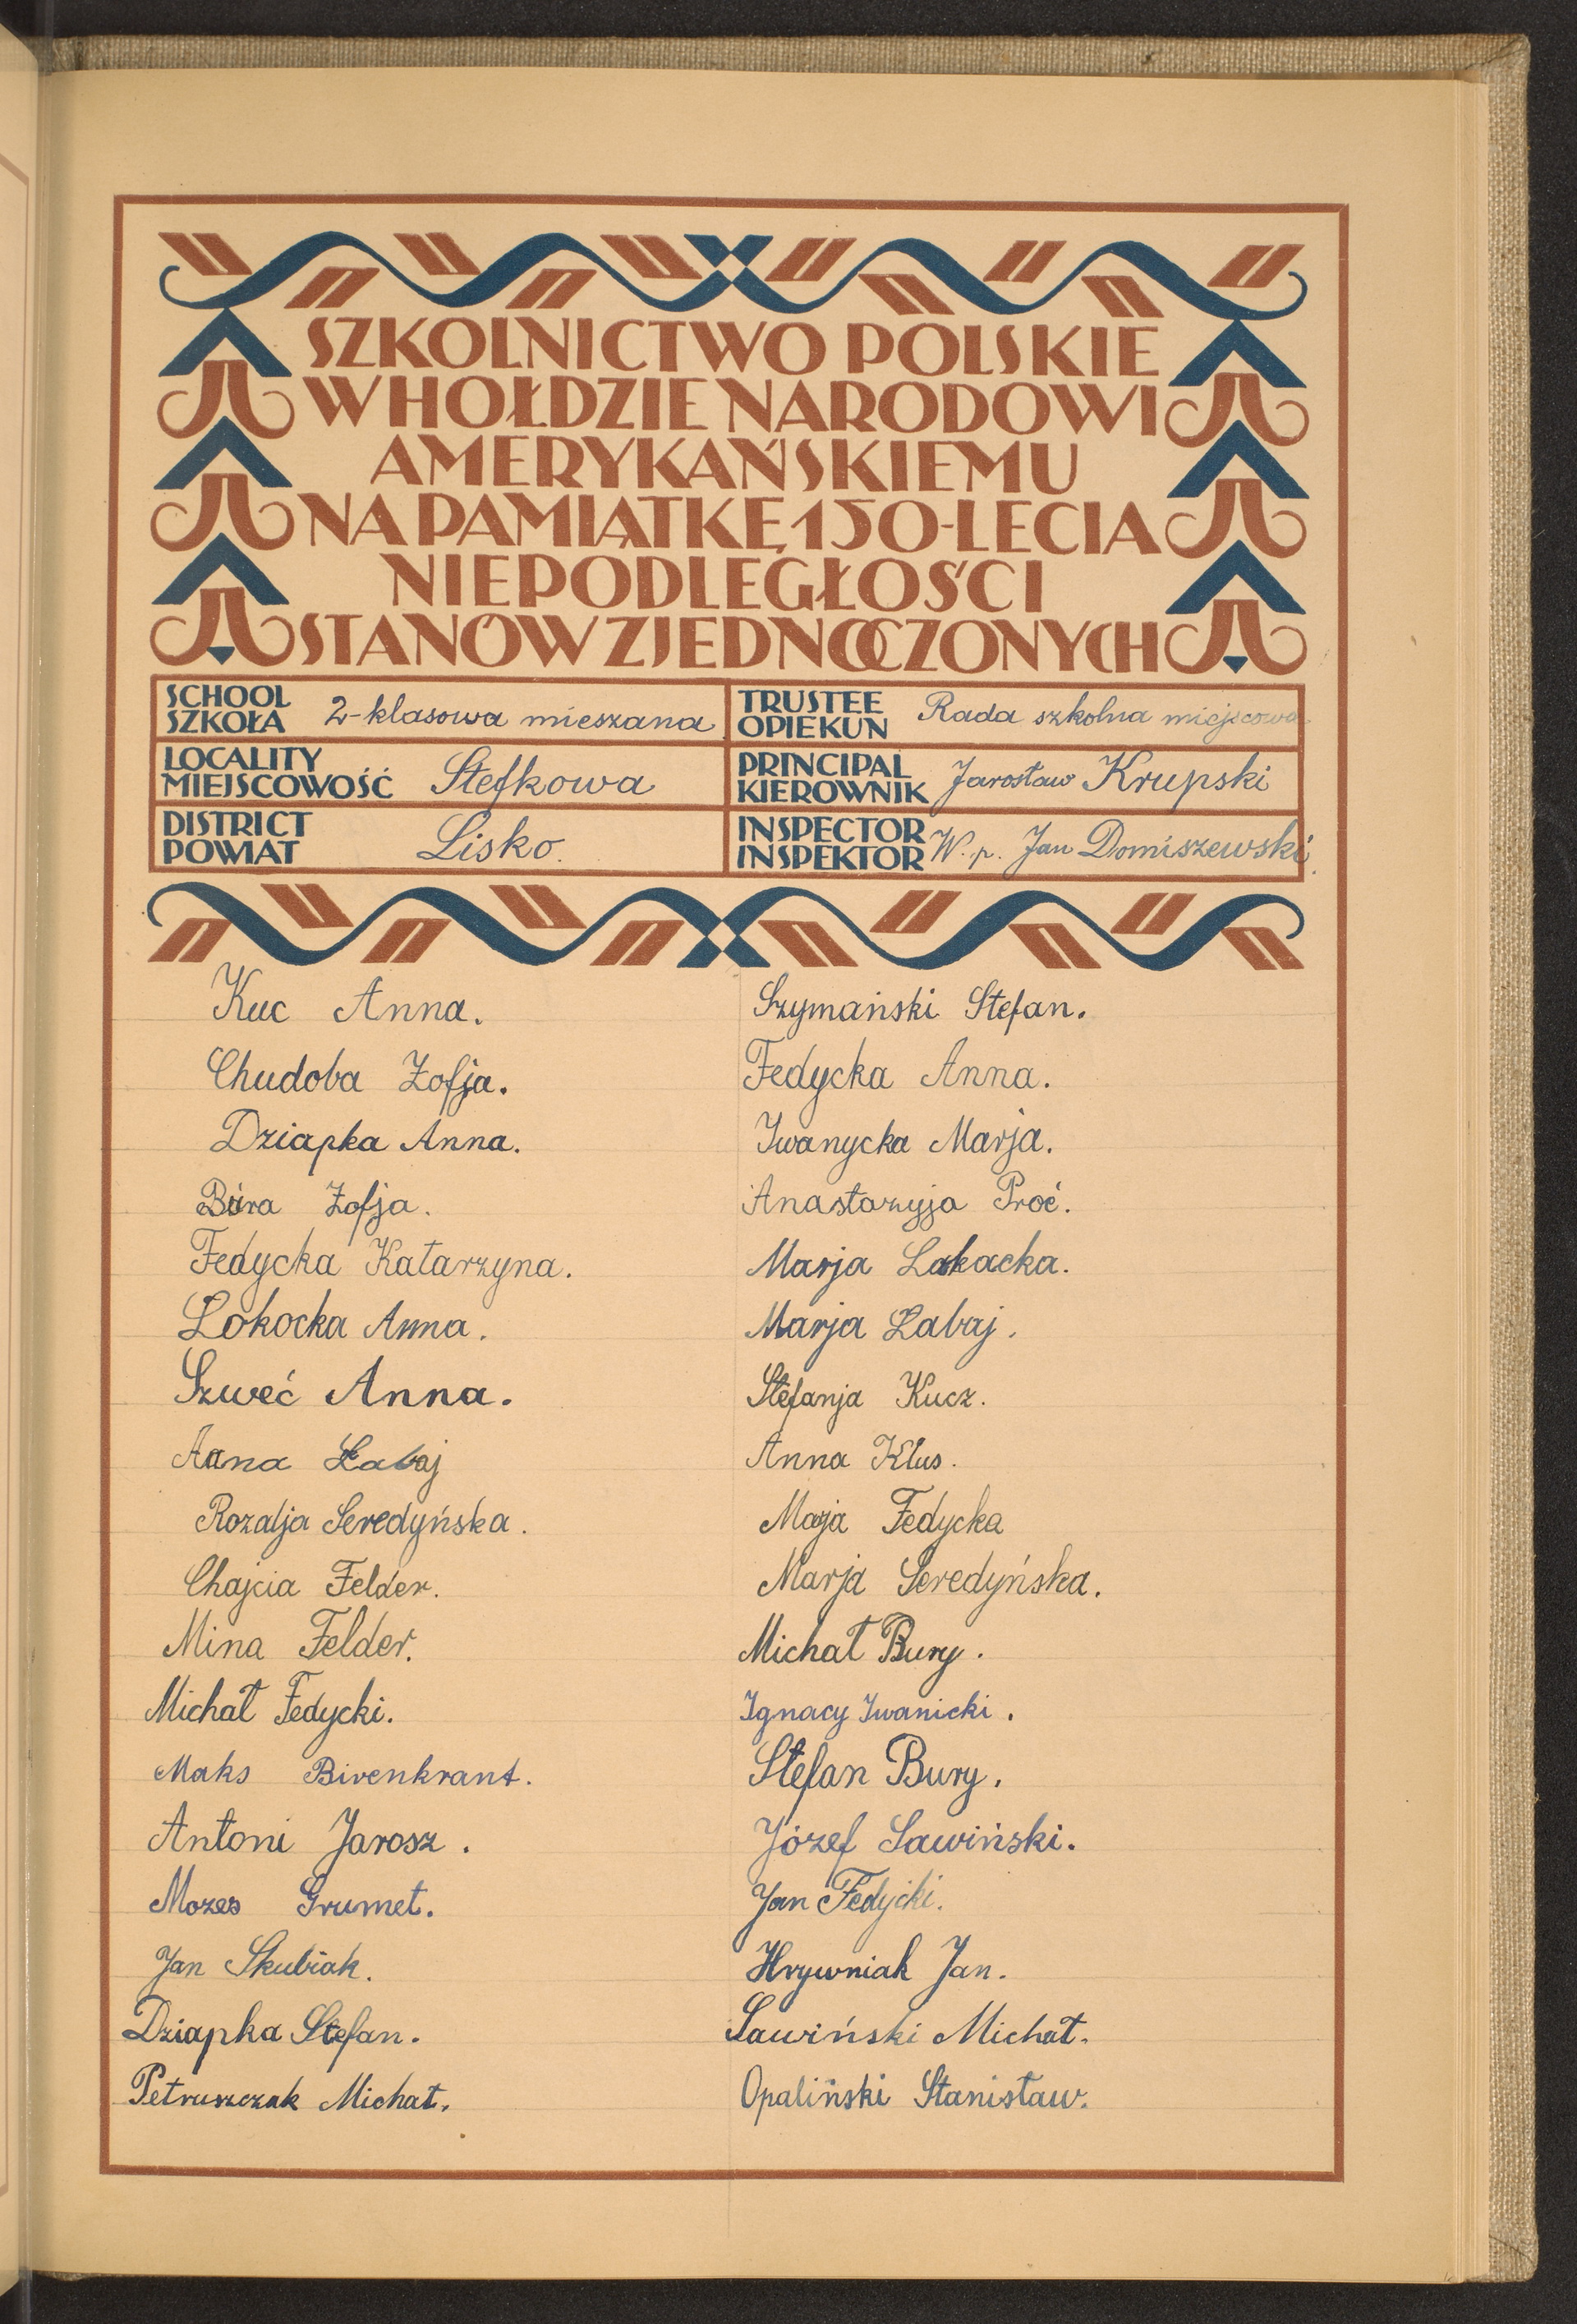 SZKOLNICTWO POLSKIE
W HOŁDZIE NARODOWI
AMERYKAŃSKIEMU
NA PAMIĄTKĘ 150-LECIA
NIEPODLEGŁOŚCI
STANÓW ZJEDNOCZONYCH
SCHOOL
SZKOŁA 2-klasowa mieszana
TRUSTEE
OPIEKUN Rada szkolna miejscowa
LOCALITY
MIEJSCOWOŚĆ Stefkowa
PRINCIPAL
KIEROWNIK Jarosław Krupski
DISTRICT
POWIAT Lisko.
INSPECTOR
INSPEKTOR W. p. Jan Domiszewski.
Kuc Anna.
Chudoba Zofja.
Dziapka Anna.
Bura Zofja.
Fedycka Katarzyna.
Łokocka Anna.
Szweć Anna.
Anna Łabaj
Rozalja Seredyńska.
Chajcia Felder.
Mina Felder.
Michał Fedycki.
Maks Birenkrant.
Antoni Jarosz.
Mozes Grumet.
Jan Skubiak.
Dziapka Stefan.
Petruszczak Michał.
Szymański Stefan.
Fedycka Anna.
Iwanycka Marja.
Anastazyja Proć.
Marja Łakacka.
Marja Łabaj.
Stefanja Kucz.
Anna Klus.
Maja Fedycka
Marja Seredyńska.
Michał Bury.
Ignacy Iwanicki.
Stefan Bury.
Józef Sawiński.
Jan Fedycki.
Hrywniak Jan.
Sawiński Michał.
Opaliński Stanisław.